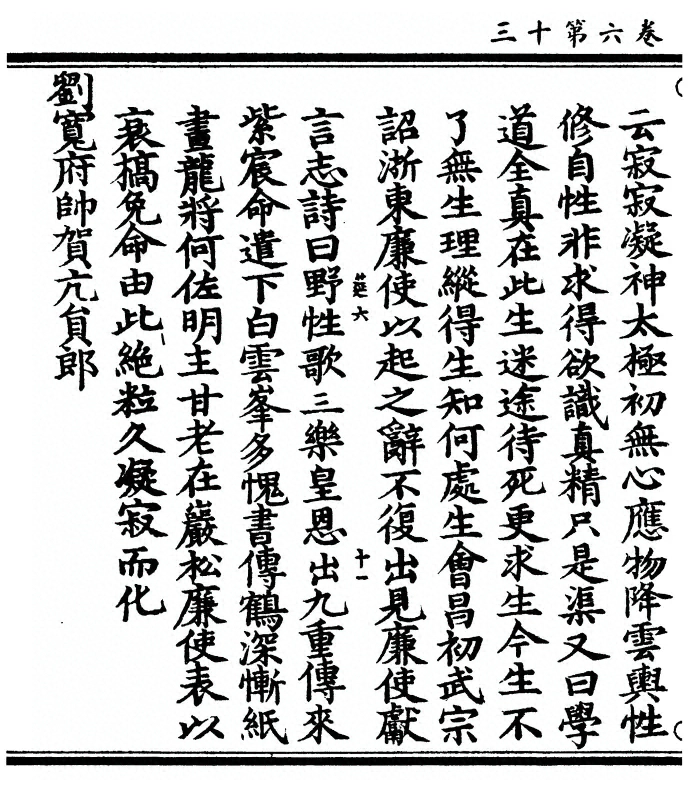 卷六第十三
云寂寂凝神太極初無心應物降雲輿性
修自性非求得欲識真精只是渠又曰學
道全真在此生迷途待死更求生今生不
了無生理縱得生知何處生會昌初武宗
詔浙東廉使以起之辭不復出見廉使獻
筵六 十一
言志詩曰野性歌三樂皇恩出九重傳來
紫宸命遣下白雲峯多愧書傳鶴深慚紙
畫龍將何佐明主甘老在巖松廉使表以
衰槁免命由此絶粒久凝寂而化
劉寬府帥賀亢貟郎